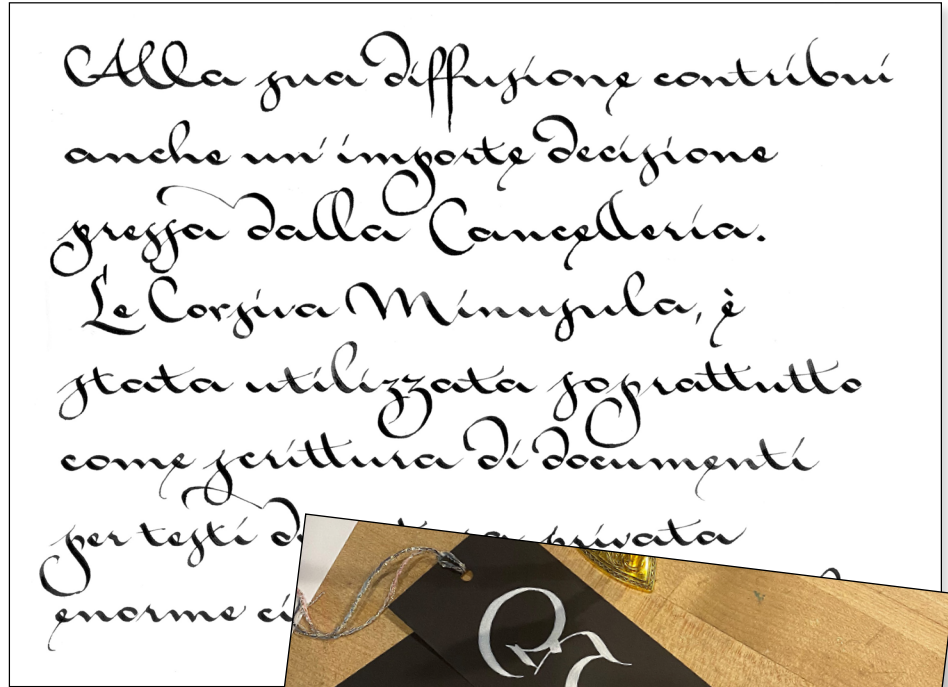 Alla sua diffusione contribuì
anche un'importe decisione
pressa dalla Cancelleria.
Le Corsiva Minusula, è
stata utilizzata soprattutto
come scrittura di documenti
per testi privata
enorme